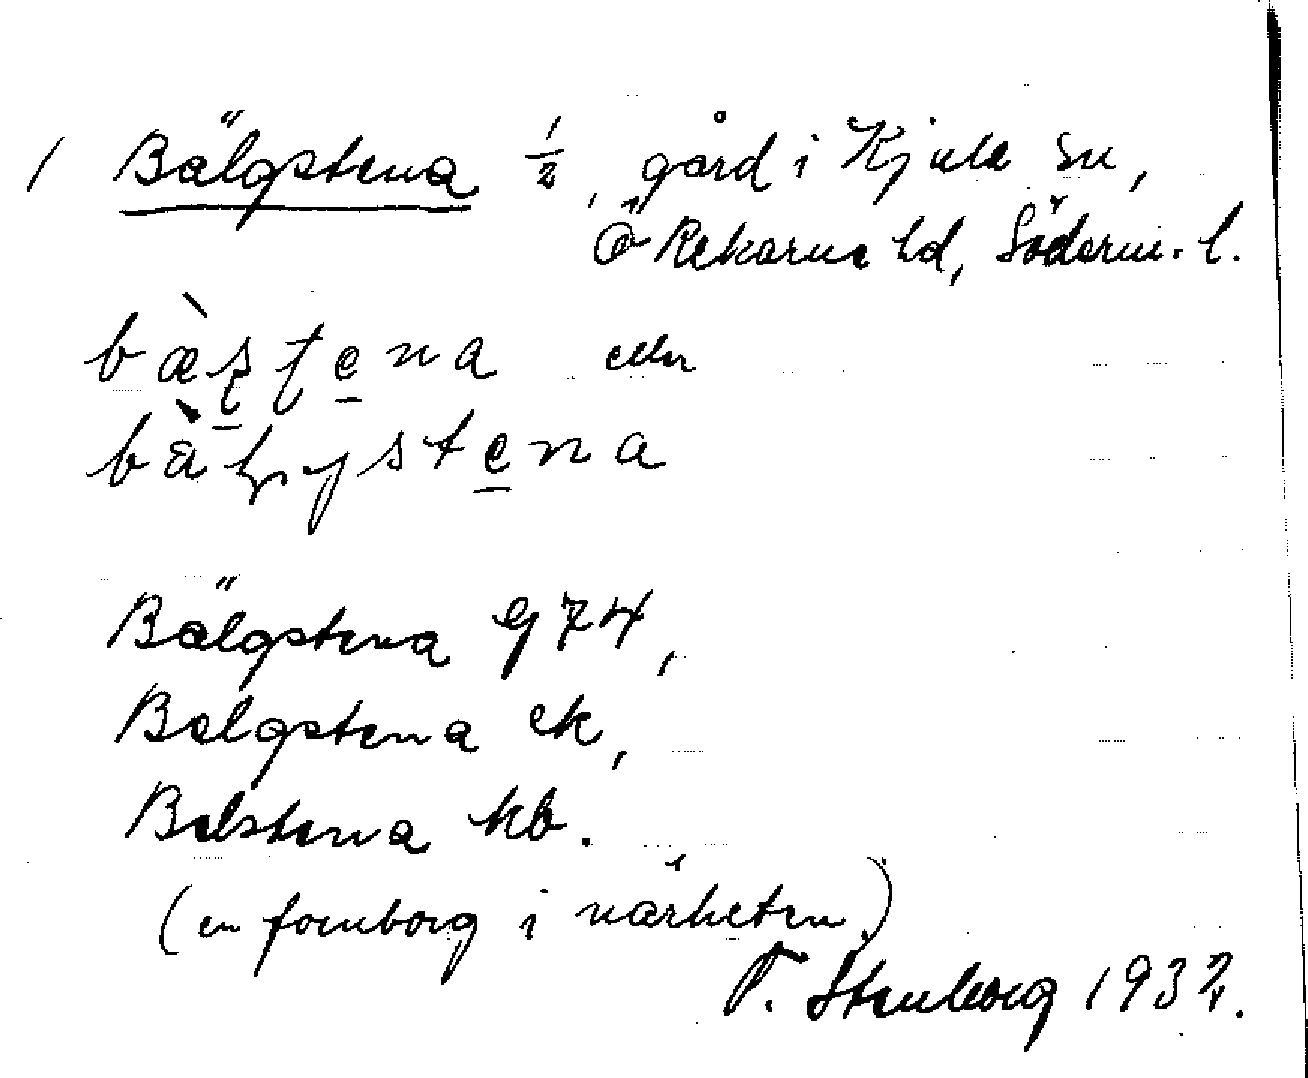 1 Bälgstena 1/2, gård i Kjula sn,
Ö Rekarne hd, Söderm. l.
bæ̀stena eller
bæ̀ljstena
Bälgstena G 74,
Belgstena ek,
Belstena kb.
(en fornborg i närheten.)
T. Stenberg 1932.